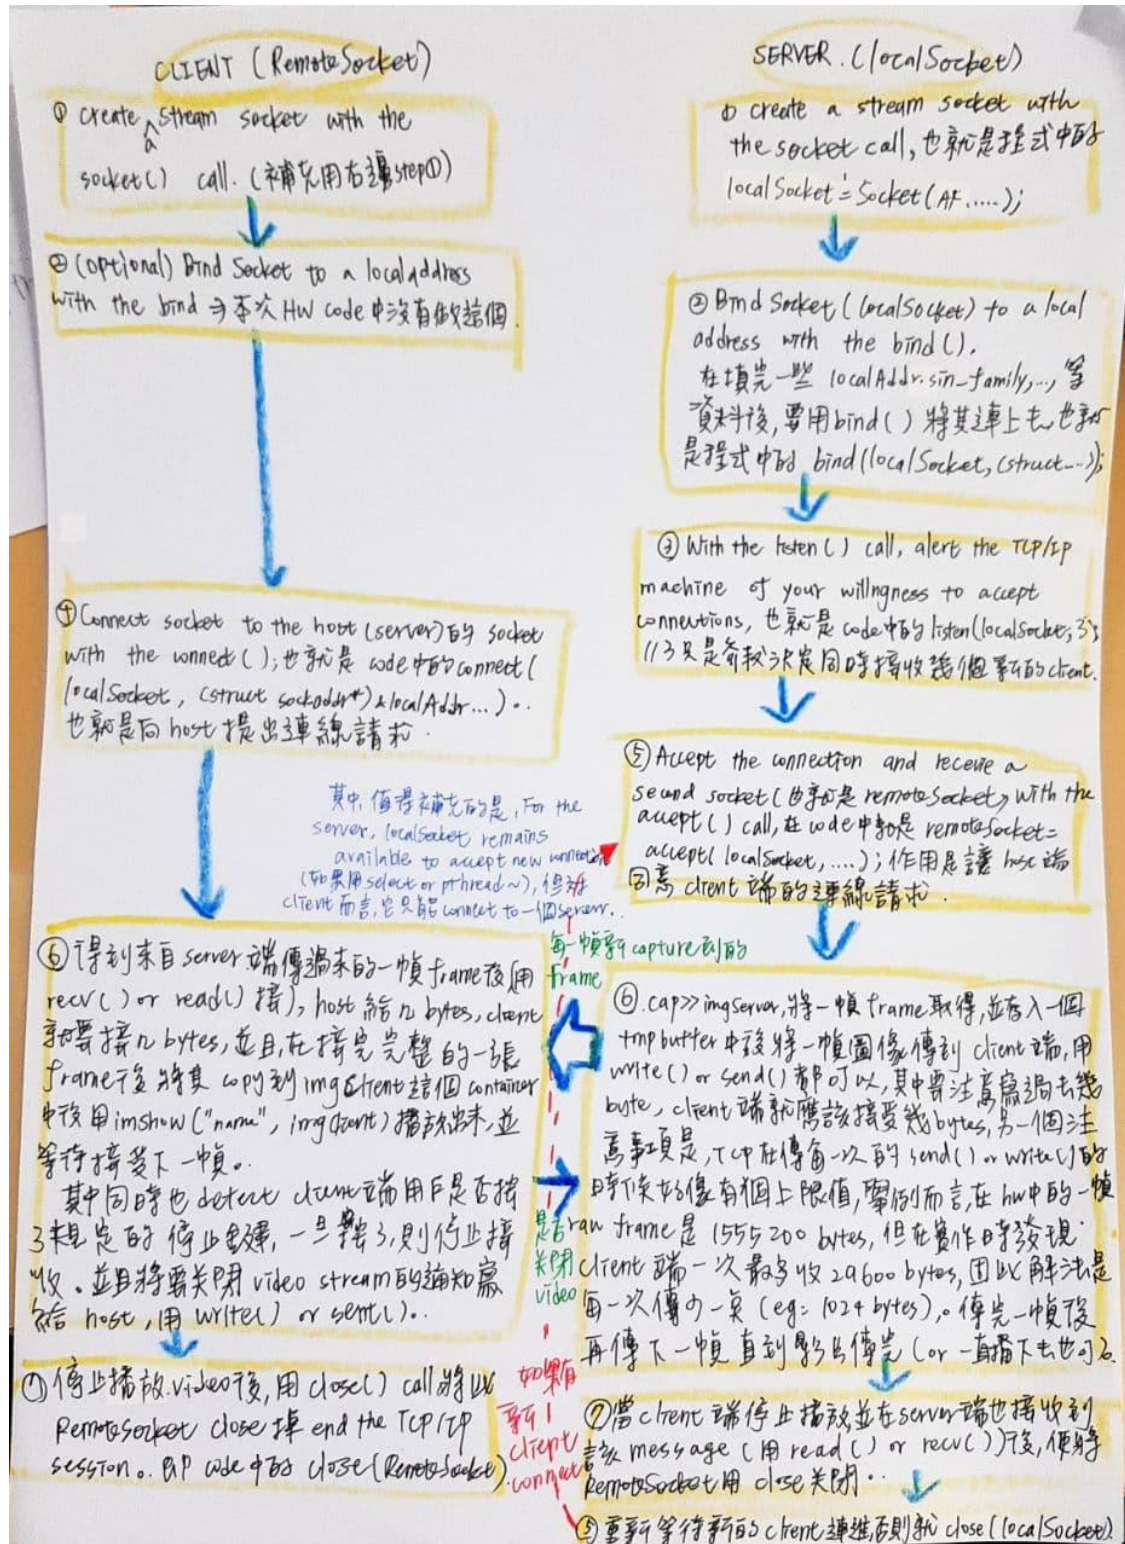 CLIENT (RemoteSocket)
① create a stream socket with the
socket() call. (補充用右邊step①)
② (optional) Bind Socket to a local address
with the bind → 本次 HW code 中沒有做這個.
④ Connect socket to the host (server)的 socket
with the connect(); 也就是 code 中的 connect(
localSocket, (struct sockaddr*)&localAddr...)..
也就是向 host 提出連線請求.
其中, 值得補充的是, For the
server, localSocket remains
available to accept new connection
(如果用select or pthread~), 但對
client 而言, 它只能connect to 一個server..
⑥ 得到來自server端傳過來的一幀frame後(用
recv() or read() 接), host 給 n bytes, client
就要接 n bytes, 並且, 在接完完整的一張
frame後將其 copy到 imgClient 這個 container
中後用imshow("name", imgClient) 播放出來, 並
等待接受下一幀。
其中同時也detect client端用戶是否按
了規定的 停止鍵, 一旦按了, 則停止接
收。並且將要关閉 video stream的通知寫
給 host, 用 write() or sent()..
⑦ 停止播放.video後, 用 close() call 將此
RemoteSocket close掉 end the TCP/IP
session.。即 code 中的 close(RemoteSocket)
每一幀新capture到的
frame
是否
关閉
video
如果有
新
client
connect
SERVER. (localSocket)
① create a stream socket with
the socket call, 也就是程式中的
localSocket = Socket(AF.....);
② Bind Socket (localSocket) to a local
address with the bind().
在填完一些 localAddr.sin_family,..., 等
資料後, 要用bind() 將其連上去, 也就
是程式中的 bind(localSocket, (struct...));
③ With the listen() call, alert the TCP/IP
machine of your willngness to accept
connections, 也就是 code中的 listen(localSocket, 3);
//3只是參數決定同時接收幾個新的client.
⑤ Accept the connection and receive a
second socket (也就是 remoteSocket, with the
accept() call, 在 code 中就是 remoteSocket=
accept( localSocket, ....); 作用是讓 host 端
同意 client 端的連線請求.
⑥ .cap>>imgServer, 將一幀 frame 取得, 並存入一個
tmp buffer 中後將一幀圖像傳到 client 端, 用
write() or send() 都可以, 其中要注意寫過去幾
byte, client 端就應該接受幾bytes, 另一個注
意事項是, TCP 在傳每一次的 send() or write() 的
時候好像有個上限值, 舉例而言, 在 hw中的一幀
raw frame 是 1555200 bytes, 但在實作時發現
client 端一次最多收 29600 bytes, 因此解法是
每一次傳少一點 (eg: 1024 bytes)。傳完一幀後
再傳下一幀 直到影片傳完 (or 一直播下去也可).
⑦ 當 client 端停止播放, 並在server端也接收到
該 message (用 read() or recv())後, 便將
RemoteSocket 用 close 关閉..
⑤ 重新等待新的client連進, 否則就 close(localSocket).